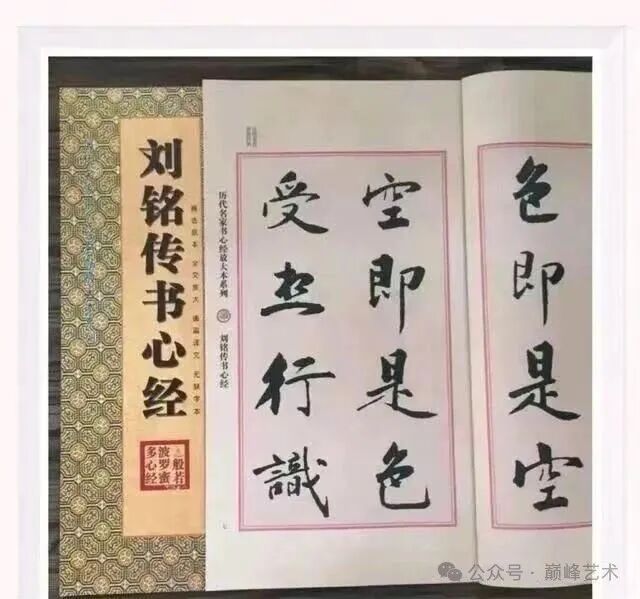 刘铭传书心经
精选底本 全文放大 通篇译文 无缺字本
般若
波罗蜜
多心经
历代名家书心经放大本系列
刘铭传书心经
色即是空
空即是色
受想行識
七
公众号·巅峰艺术